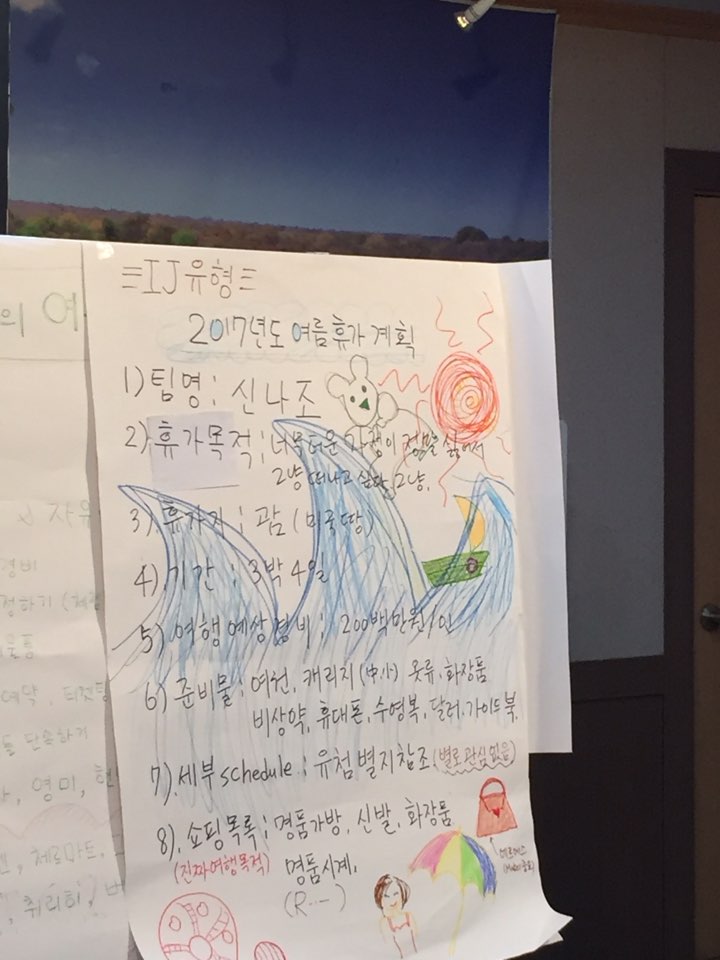 의 여
자유
경비
정하기
예약, 티켓팅
단속하기
영미,
체르마트,
취리히,
=IJ유형=
2017년도 여름휴가 계획
1) 팀명: 신나조
2) 휴가목적; 너무더운 가정이 정말 싫어서
그냥 떠나고 싶다. 그냥.
3). 휴가지; 괌 (미국땅)
4) 기간 ; 3박 4일
5) 여행 예상 경비; 200백만원/인
6) 준비물; 여권, 캐리지(中,小) 옷류, 화장품
비상약, 휴대폰, 수영복, 달러, 가이드북.
7). 세부 schedule; 유첨 별지참조 (별로 관심 없음)
8). 쇼핑목록; 명품가방, 신발, 화장품
(진짜여행목적) 명품시계.
(R...-)
에르메스